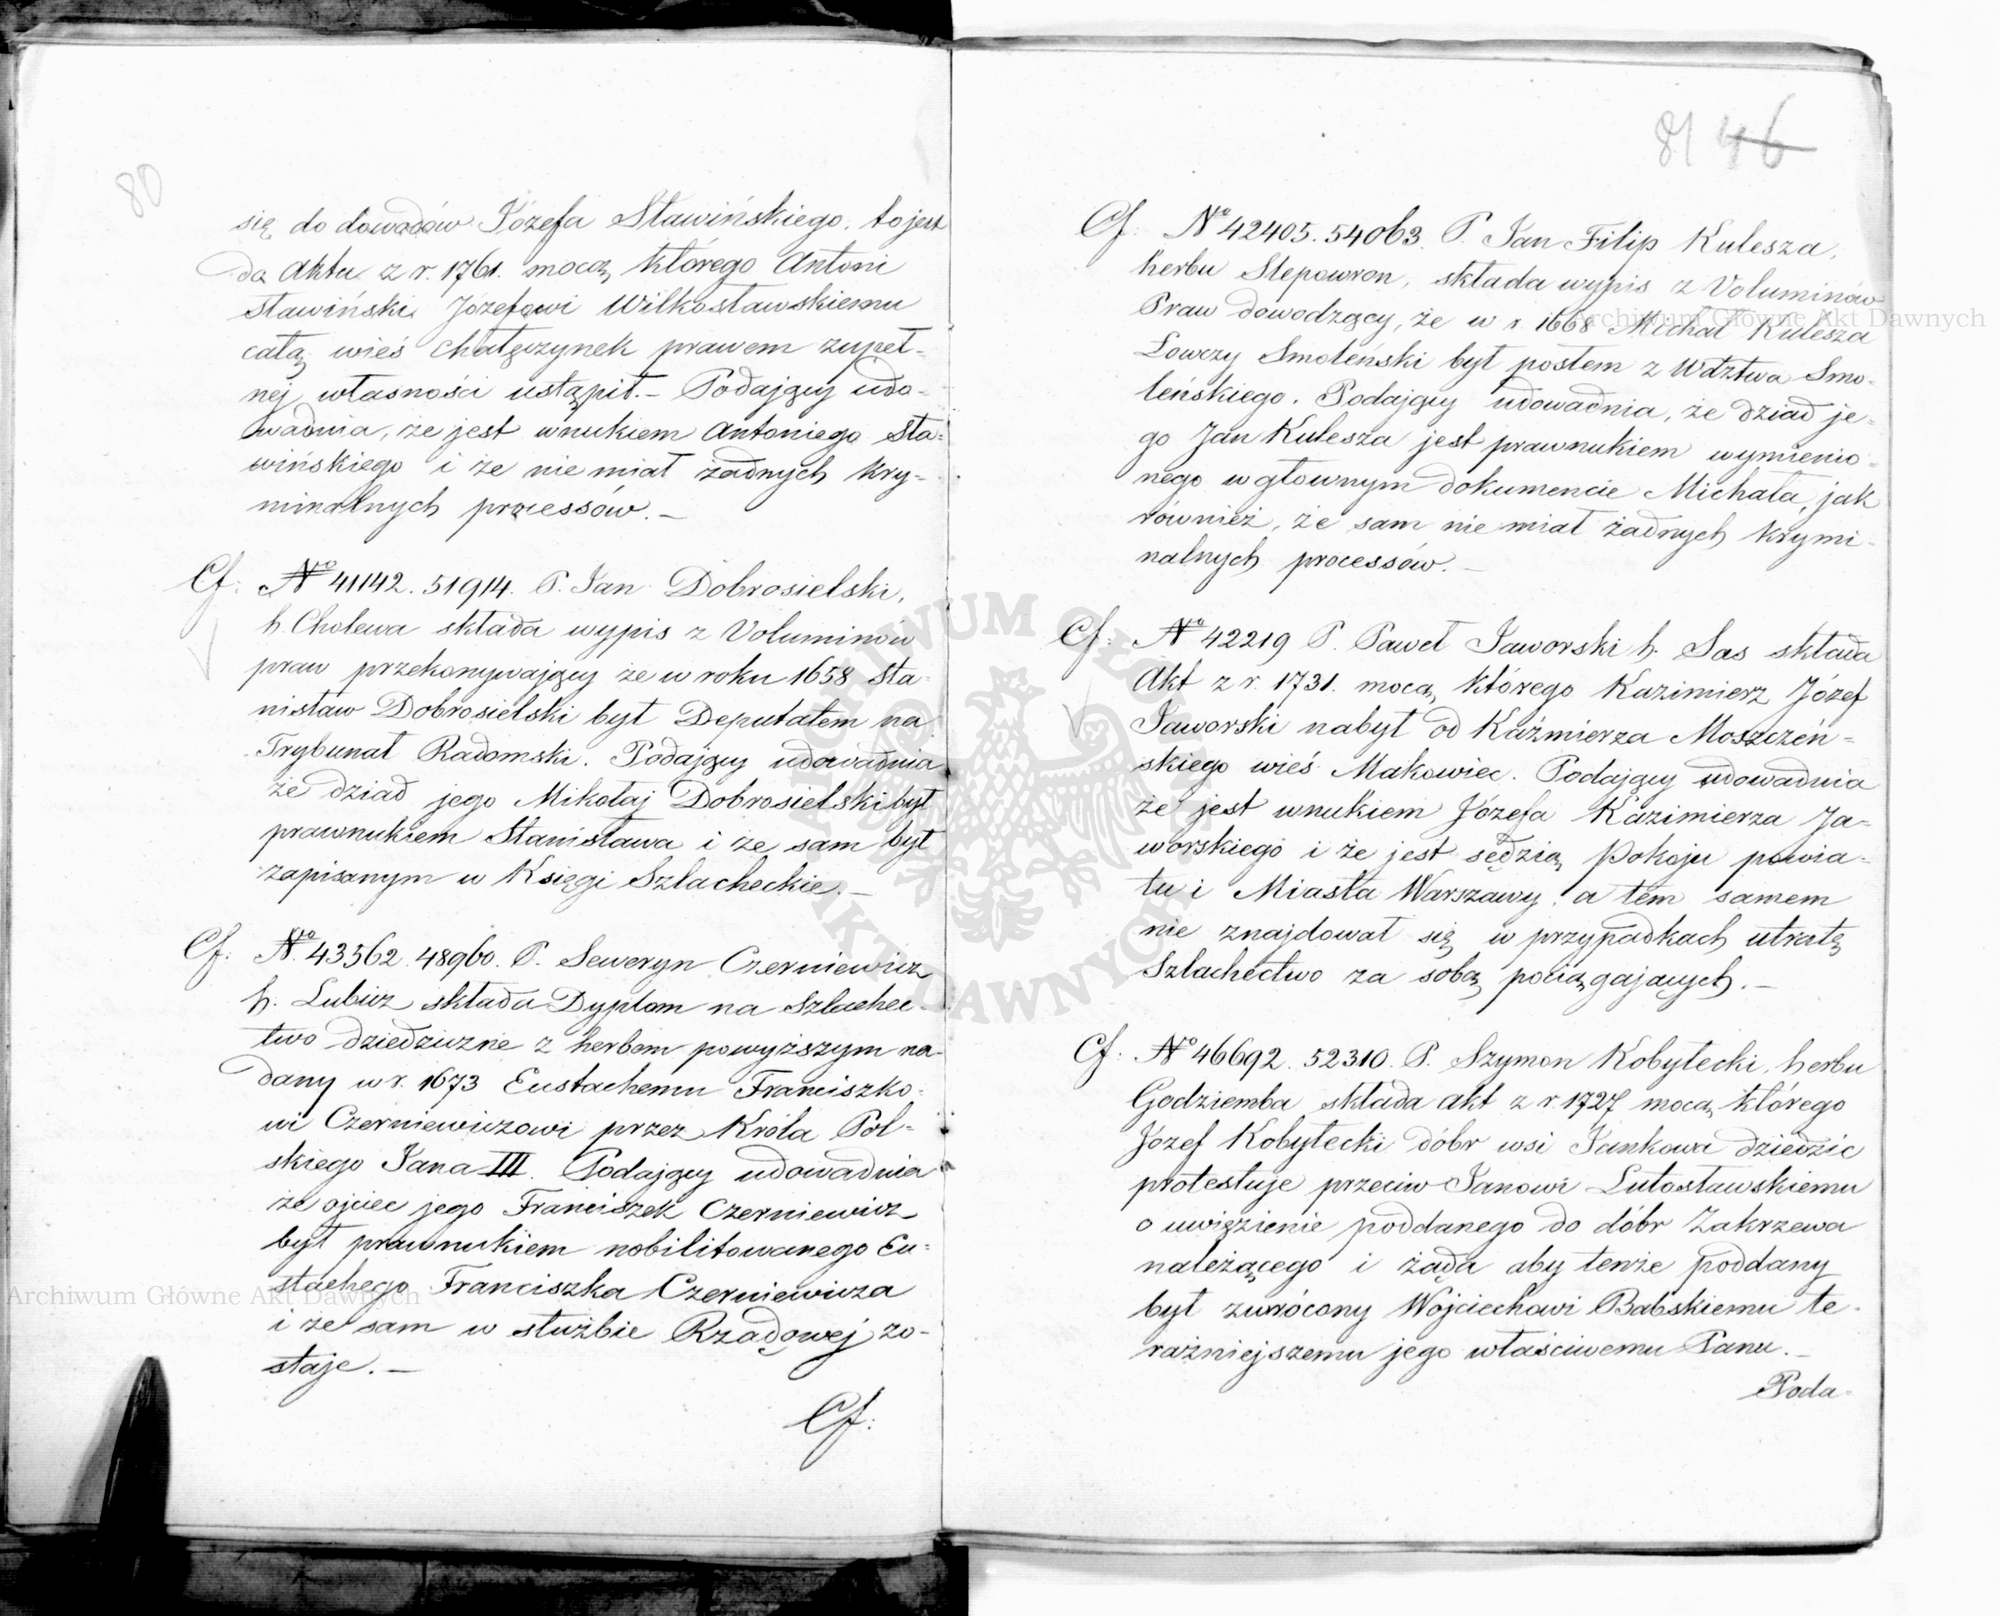 80
się do dowodów Józefa Sławińskiego. to jest
do Aktu z r. 1761. mocą którego Antoni
Sławiński Józefowi Wilkosławskiemu
całą wieś Chałęczynek prawem zupeł-
nej własności ustąpił. – Podający udo-
wadnia, że jest wnukiem Antoniego Sła-
wińskiego i że nie miał żadnych kry-
minalnych processów. –
Cf: № 41142. 51914. P. Jan Dobrosielski,
h. Cholewa składa wypis z Voluminów
praw przekonywający że w roku 1658 Sta-
nisław Dobrosielski był Deputatem na
Trybunał Radomski. Podający udowadnia
że dziad jego Mikołaj Dobrosielski był
prawnukiem Stanisława i że sam był
zapisanym w Księgi Szlacheckie. –
Cf: № 43562. 48960. P. Seweryn Czerniewicz
h. Lubicz składa Dyplom na Szlachec-
two dziedziczne z herbem powyższym na-
dany w r. 1673 Eustachemu Franciszko-
wi Czerniewiczowi przez Króla Pol-
skiego Jana III. Podający udowadnia
że ojciec jego Franciszek Czerniewicz
był prawnukiem nobilitowanego Eu-
stachego Franciszka Czerniewicza
i że sam w służbie Rządowej zo-
staje. –
Cf:
81 46
Cf: № 42405. 54063. P. Jan Filip Kulesza,
herbu Slepowron, składa wypis z Voluminów
Praw dowodzący, że w r. 1668 Michał Kulesza
Łowczy Smoleński był posłem z Wdztwa Smo-
leńskiego. Podający udowadnia, że dziad je-
go Jan Kulesza jest prawnukiem wymienio-
nego w głównym dokumencie Michała, jak
również, że sam nie miał żadnych krymi-
nalnych processów. –
Cf: № 42219 P. Paweł Jaworski h. Sas składa
Akt z r. 1731. mocą którego Kazimierz Józef
Jaworski nabył od Kaźmierza Moszczeń-
skiego wieś Makowiec. Podający udowadnia
że jest wnukiem Józefa Kazimierza Ja-
worskiego i że jest sędzią Pokoju powia-
tu i Miasta Warszawy a tém samem
nie znajdował się w przypadkach utratę
Szlachectwo za sobą pociągających. –
Cf: № 46692. 52310. P. Szymon Kobyłecki, herbu
Godziemba składa akt z r. 1727 mocą którego
Józef Kobyłecki dóbr wsi Jankowa dziedzic
protestuje przeciw Janowi Lutosławskiemu
o uwięzienie poddanego do dóbr Zakrzewa
należącego i żąda aby tenże poddany
był zwrócony Wojciechowi Babskiemu te-
raźniejszemu jego właściwemu Panu. –
Poda-
ARCHIWUM GŁÓWNE AKT DAWNYCH
Archiwum Główne Akt Dawnych
Archiwum Główne Akt Dawnych